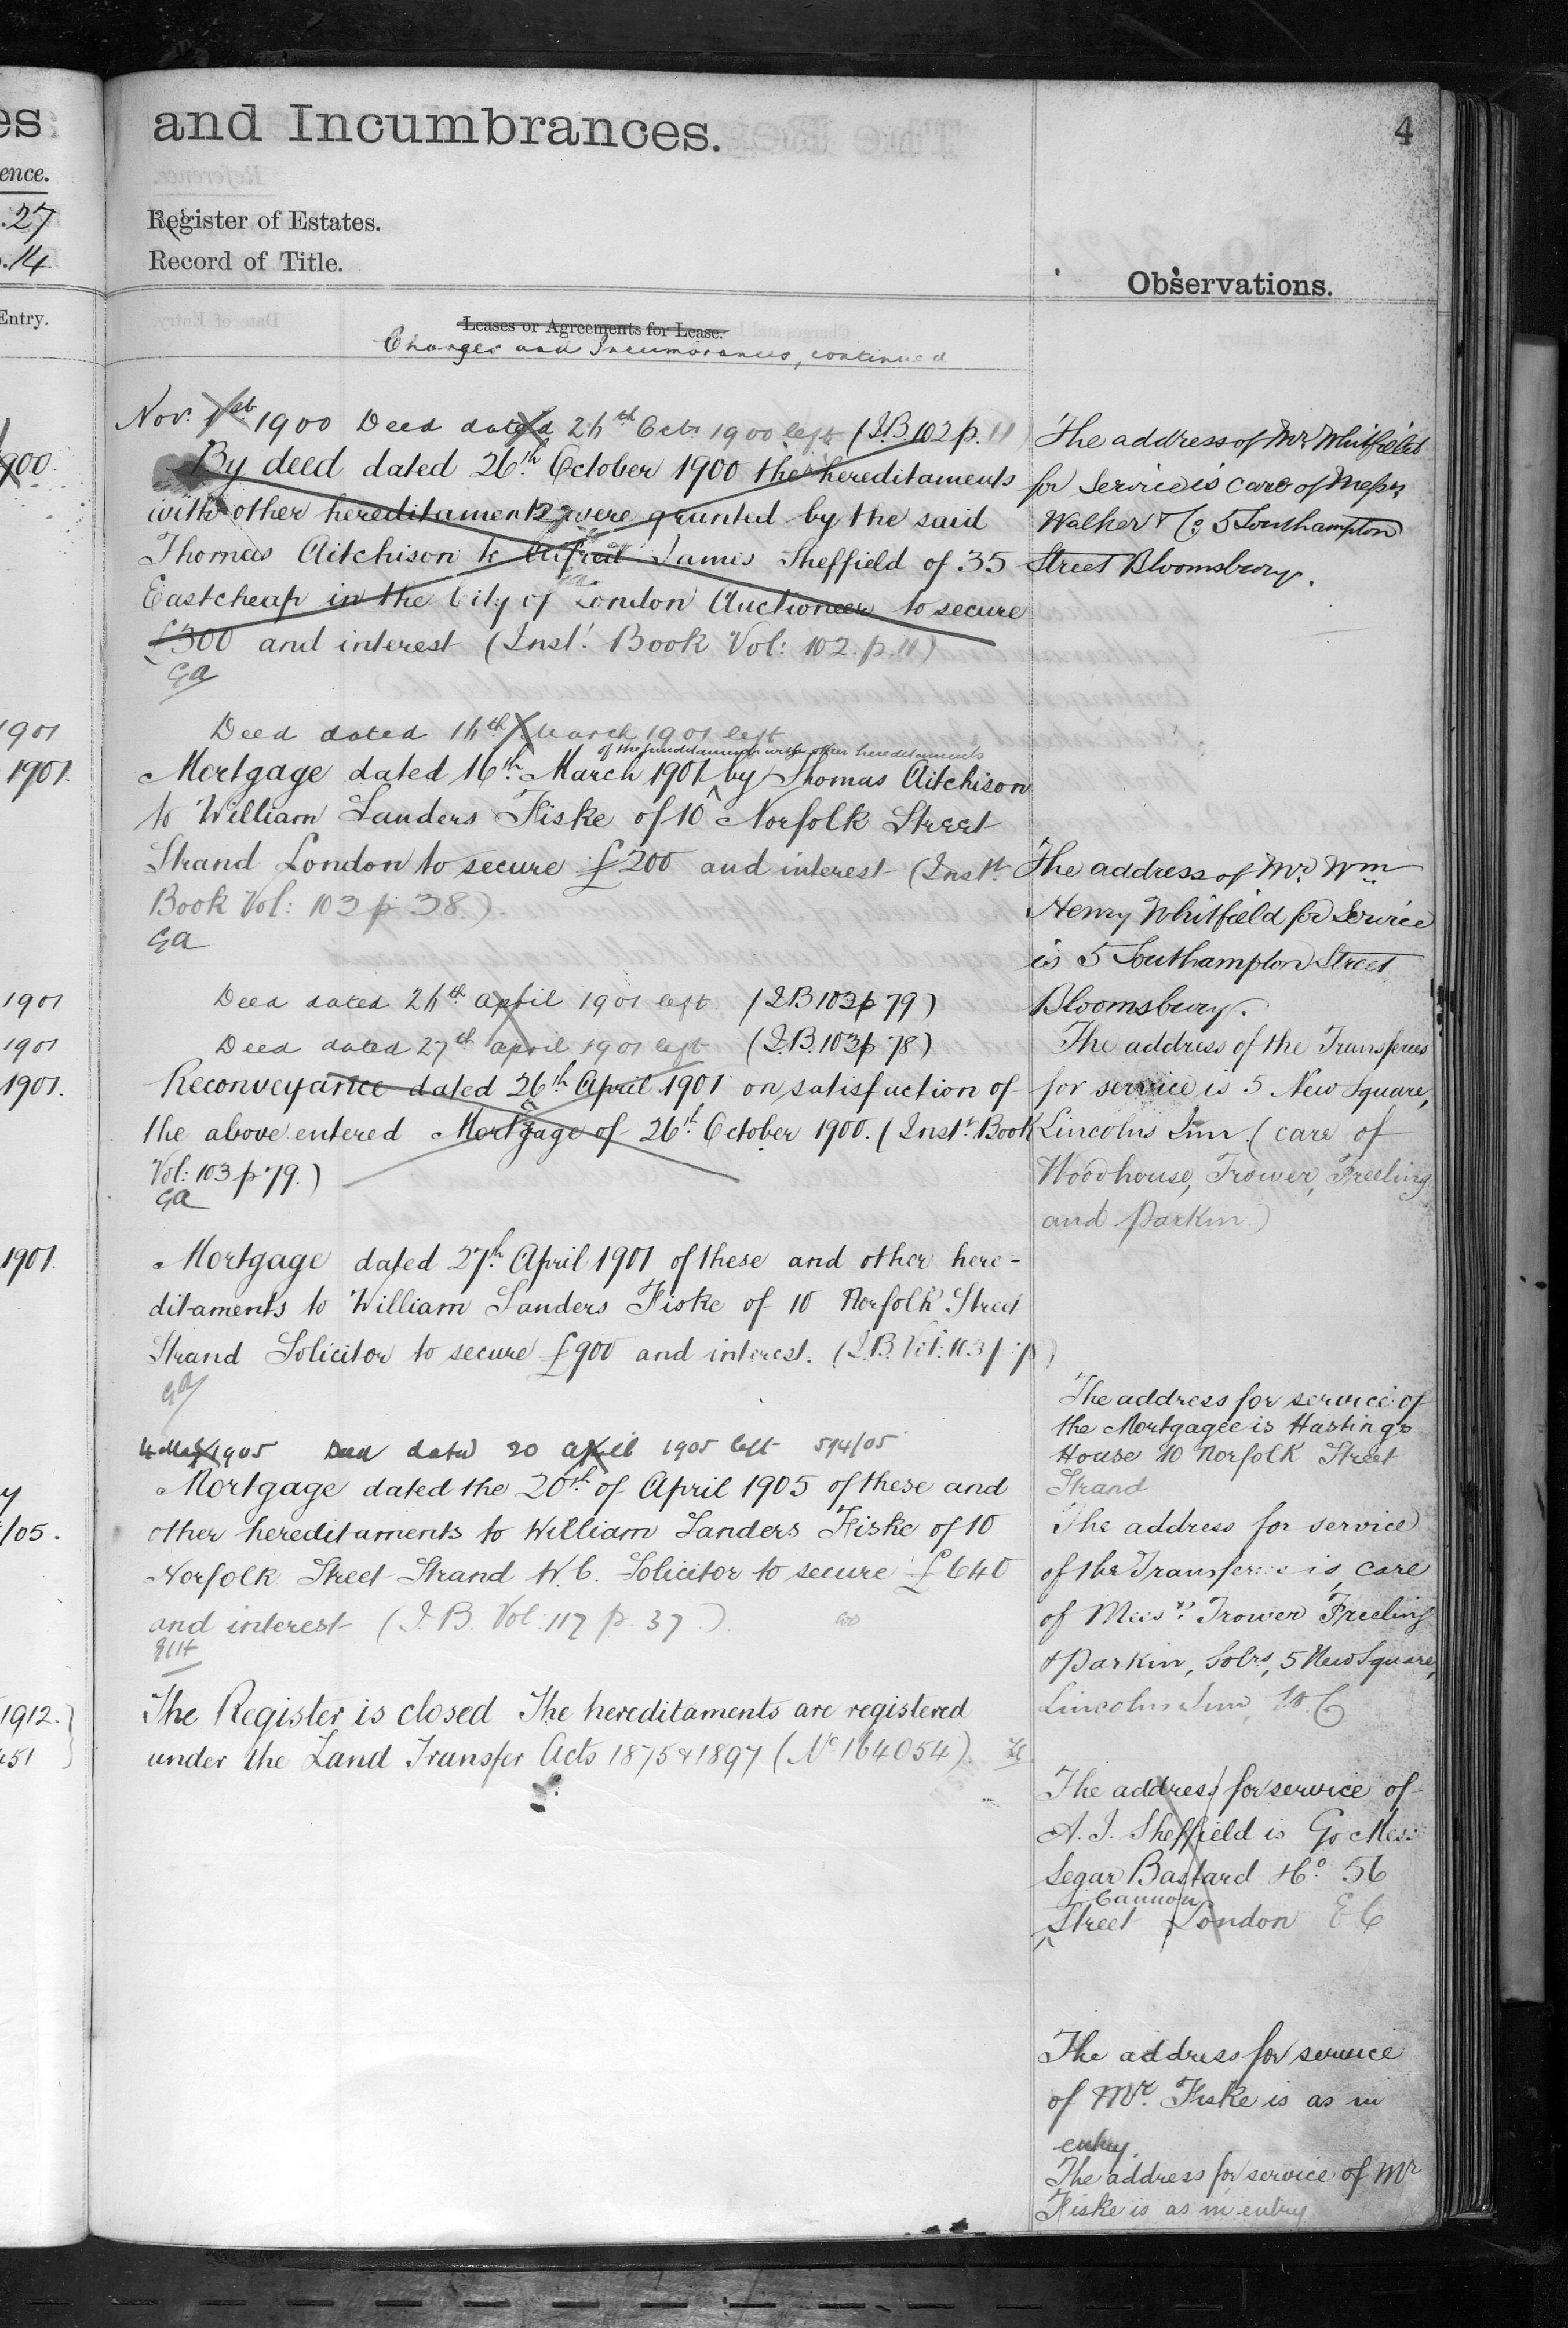 es
ence.
.27
.14
Entry.
1900.
1901
1901.
1901
1901
1901.
1901.
y
/05.
1912.
451
and Incumbrances.
4
Register of Estates.
Record of Title.
Leases or Agreements for Lease.
Charges and Incumbrances, continued
Nov. 1st 1900 Deed dated 26th Oct. 1900 left (I.B. 102 p. 11)
By deed dated 26th October 1900 the hereditaments
with other hereditaments were granted by the said
Thomas Aitchison to Alfred James Sheffield of 35
Eastcheap in the City of London Auctioneer to secure
£300 and interest (Inst. Book Vol: 102. p. 11)
GA
Deed dated 16th March 1901 left
of the hereditaments with other hereditaments
Mortgage dated 16th March 1901 by Thomas Aitchison
to William Sanders Fiske of 10 Norfolk Street
Strand London to secure £200 and interest (Inst.
Book Vol: 103 p 38.)
GA
Deed dated 26th April 1901 left (I.B 103 p 79)
Deed dated 27th April 1901 left (I.B. 103 p 78)
Reconveyance dated 26th April 1901 on satisfaction of
the above entered Mortgage of 26th October 1900. (Inst. Book
Vol: 103 p 79.)
GA
Mortgage dated 27th April 1901 of these and other here-
ditaments to William Sanders Fiske of 10 Norfolk Street
Strand Solicitor to secure £900 and interest. (I.B. Vol: 103 p
GA
4 May 1905 Deed dated 20 April 1905 left 594/05
Mortgage dated the 20th of April 1905 of these and
other hereditaments to William Sanders Fiske of 10
Norfolk Street Strand W.C. Solicitor to secure £640
and interest (I.B. Vol: 117 p. 37.)
The Register is closed The hereditaments are registered
under the Land Transfer Acts 1875 & 1897 (No 164054)
Observations.
The address of Mr Whitfield
for service is care of Messrs
Walker & Co 5 Southampton
Street Bloomsbury.
The address of Mr Wm
Henry Whitfield for Service
is 5 Southampton Street
Bloomsbury.
The address of the Transferees
for service is 5 New Square,
Lincolns Inn (care of
Woodhouse, Trower, Freeling
and Parkin.)
The address for service of
the Mortgagee is Hastings
House 10 Norfolk Street
Strand
The address for service
of the Transferees is, care
of Messrs. Trower Freeling
& Parkin, Solrs, 5 New Square,
Lincolns Inn, W.C
The address for service of
A. J. Sheffield is c/o Mess
Segar Bastard & Co. 56
Cannon
Street London E C
The address for service
of Mr. Fiske is as in
entry.
The address for service of Mr
Fiske is as in entry